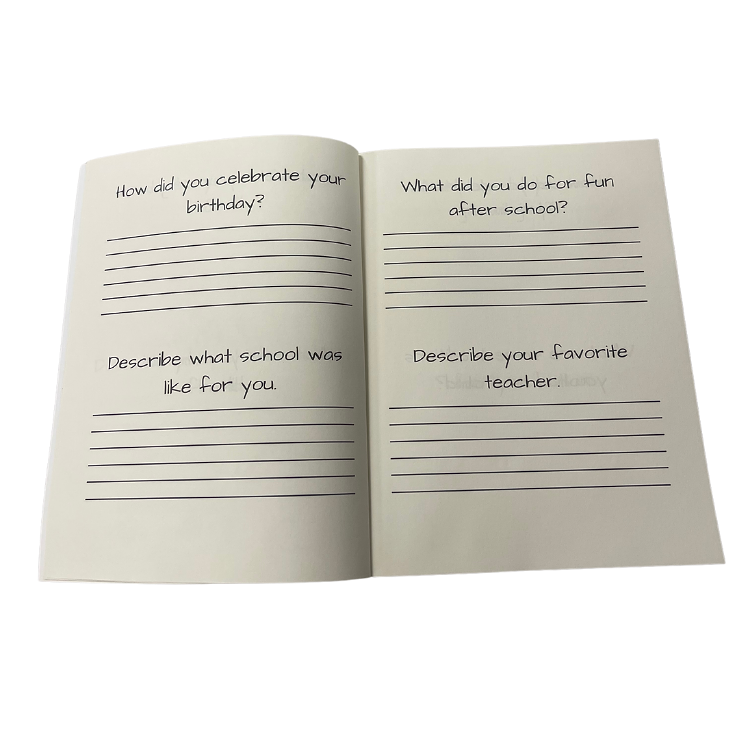 How did you celebrate your
birthday?
Describe what school was
like for you.
What did you do for fun
after school?
Describe your favorite
teacher.